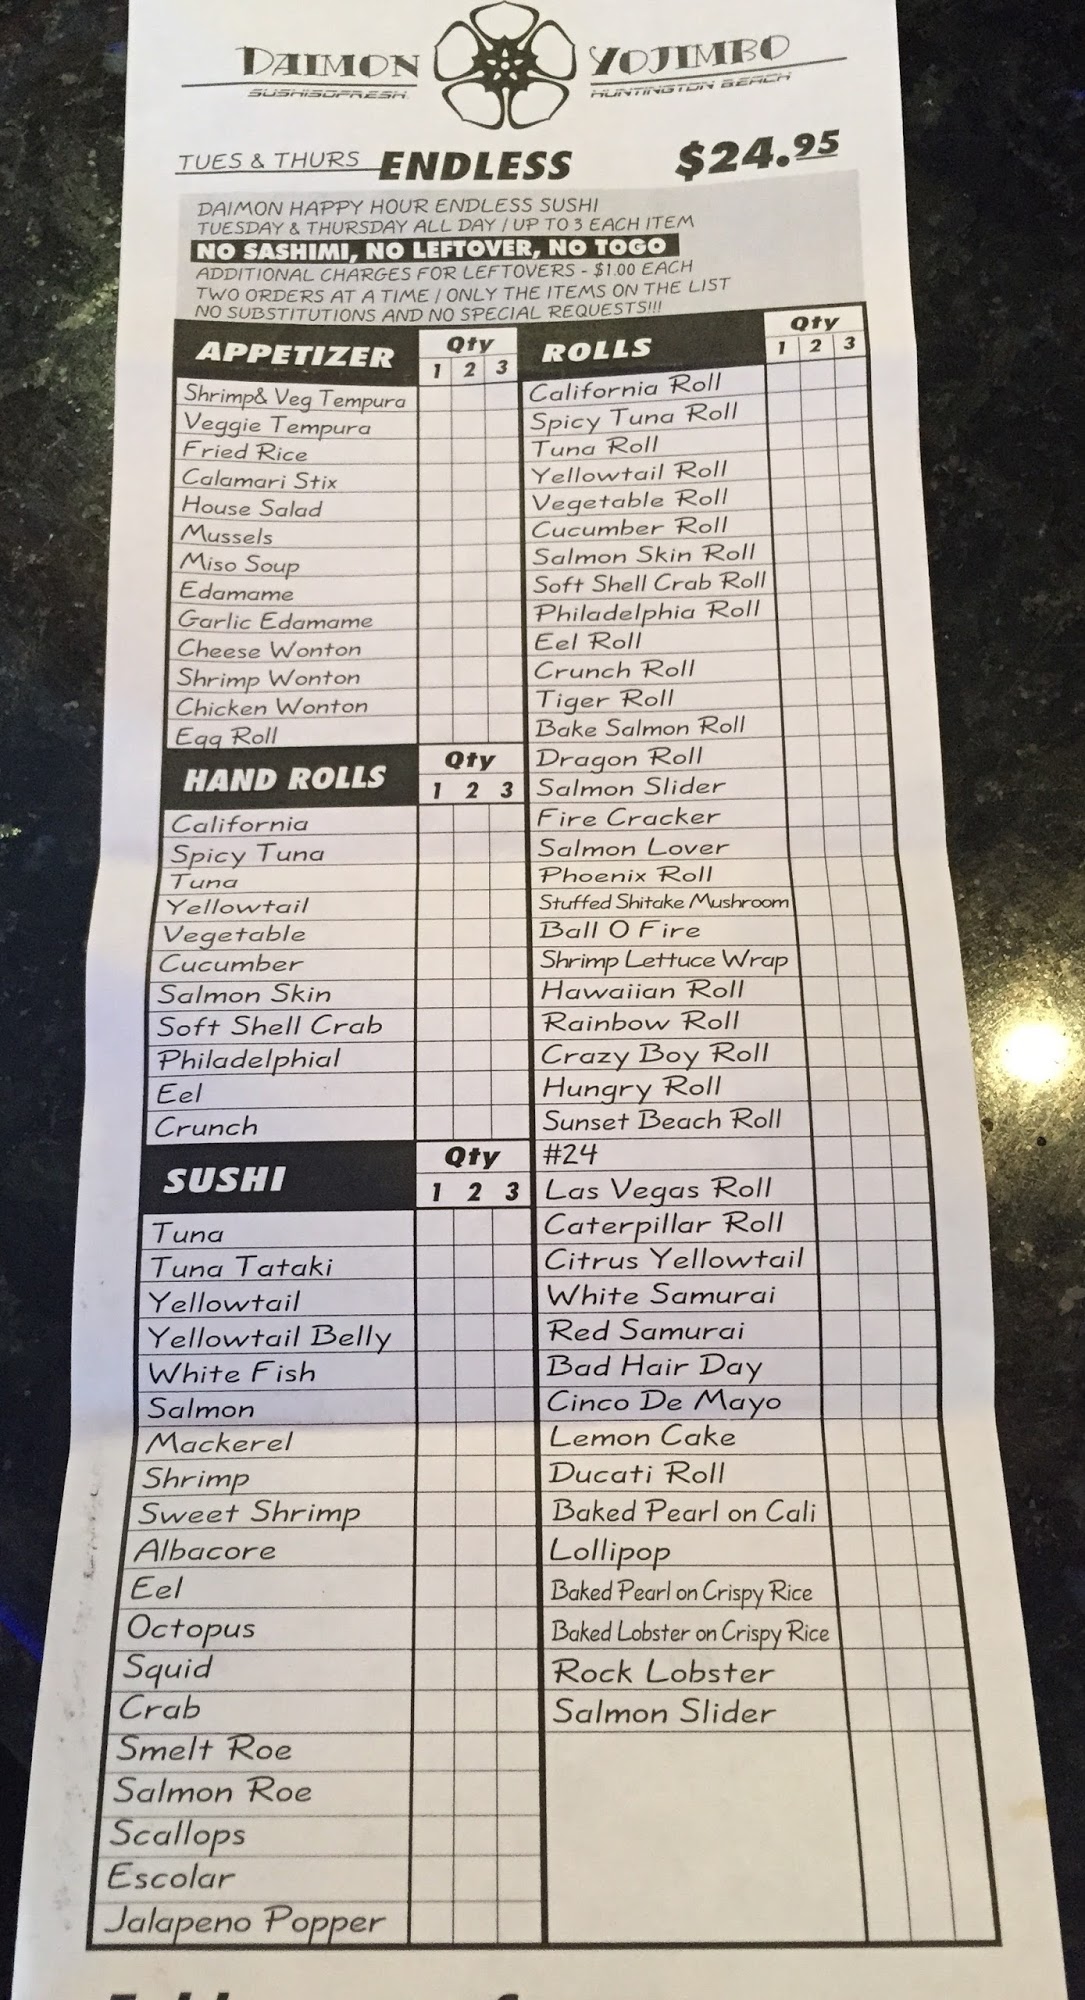 DAIMON YOJIMBO
SUSHISOFRESH. HUNTINGTON BEACH
TUES & THURS ENDLESS $24.95
DAIMON HAPPY HOUR ENDLESS SUSHI
TUESDAY & THURSDAY ALL DAY / UP TO 3 EACH ITEM
NO SASHIMI, NO LEFTOVER, NO TOGO
ADDITIONAL CHARGES FOR LEFTOVERS - $1.00 EACH
TWO ORDERS AT A TIME / ONLY THE ITEMS ON THE LIST
NO SUBSTITUTIONS AND NO SPECIAL REQUESTS!!!
APPETIZER Qty
1 2 3
Shrimp& Veg Tempura
Veggie Tempura
Fried Rice
Calamari Stix
House Salad
Mussels
Miso Soup
Edamame
Garlic Edamame
Cheese Wonton
Shrimp Wonton
Chicken Wonton
Egg Roll
HAND ROLLS Qty
1 2 3
California
Spicy Tuna
Tuna
Yellowtail
Vegetable
Cucumber
Salmon Skin
Soft Shell Crab
Philadelphial
Eel
Crunch
SUSHI Qty
1 2 3
Tuna
Tuna Tataki
Yellowtail
Yellowtail Belly
White Fish
Salmon
Mackerel
Shrimp
Sweet Shrimp
Albacore
Eel
Octopus
Squid
Crab
Smelt Roe
Salmon Roe
Scallops
Escolar
Jalapeno Popper
ROLLS Qty
1 2 3
California Roll
Spicy Tuna Roll
Tuna Roll
Yellowtail Roll
Vegetable Roll
Cucumber Roll
Salmon Skin Roll
Soft Shell Crab Roll
Philadelphia Roll
Eel Roll
Crunch Roll
Tiger Roll
Bake Salmon Roll
Dragon Roll
Salmon Slider
Fire Cracker
Salmon Lover
Phoenix Roll
Stuffed Shitake Mushroom
Ball O Fire
Shrimp Lettuce Wrap
Hawaiian Roll
Rainbow Roll
Crazy Boy Roll
Hungry Roll
Sunset Beach Roll
#24
Las Vegas Roll
Caterpillar Roll
Citrus Yellowtail
White Samurai
Red Samurai
Bad Hair Day
Cinco De Mayo
Lemon Cake
Ducati Roll
Baked Pearl on Cali
Lollipop
Baked Pearl on Crispy Rice
Baked Lobster on Crispy Rice
Rock Lobster
Salmon Slider